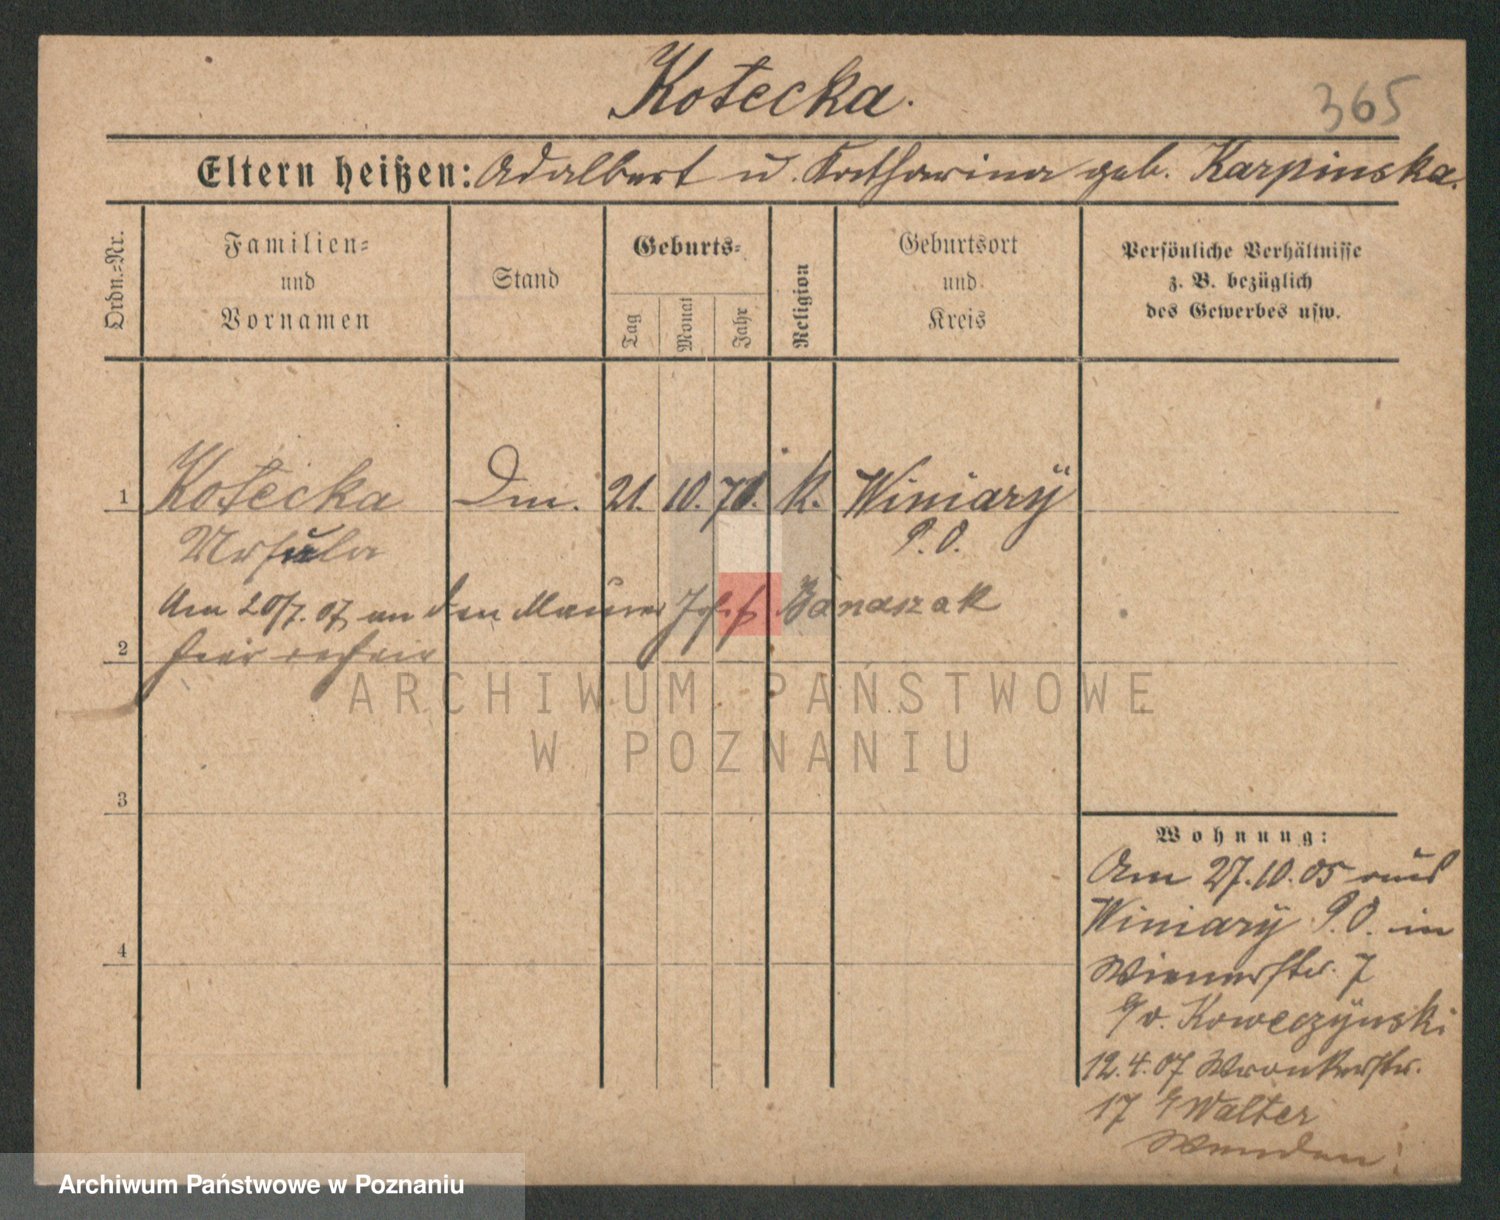 Kotecka.
365
Eltern heißen: Adalbert u. Katharina geb. Karpinska.
Ordn.-Nr.
Familien-
und
Vornamen
Stand
Geburts-
Tag
Monat
Jahr
Religion
Geburtsort
und
Kreis
Persönliche Verhältnisse
z. B. bezüglich
des Gewerbes usw.
1 Kotecka Dm. 21. 10. k. Winiary
Ursula P. O.
Am 20/7. 07 an den Maurer Josef Banaszak
2 hier
ARCHIWUM PAŃSTWOWE
W POZNANIU
3
4
Wohnung:
Am 27.10.05 aus
Winiary P.O. in
Wienerstr. 7
b/v.
12.4.07 Wronkerstr.
17 Walter
Archiwum Państwowe w Poznaniu